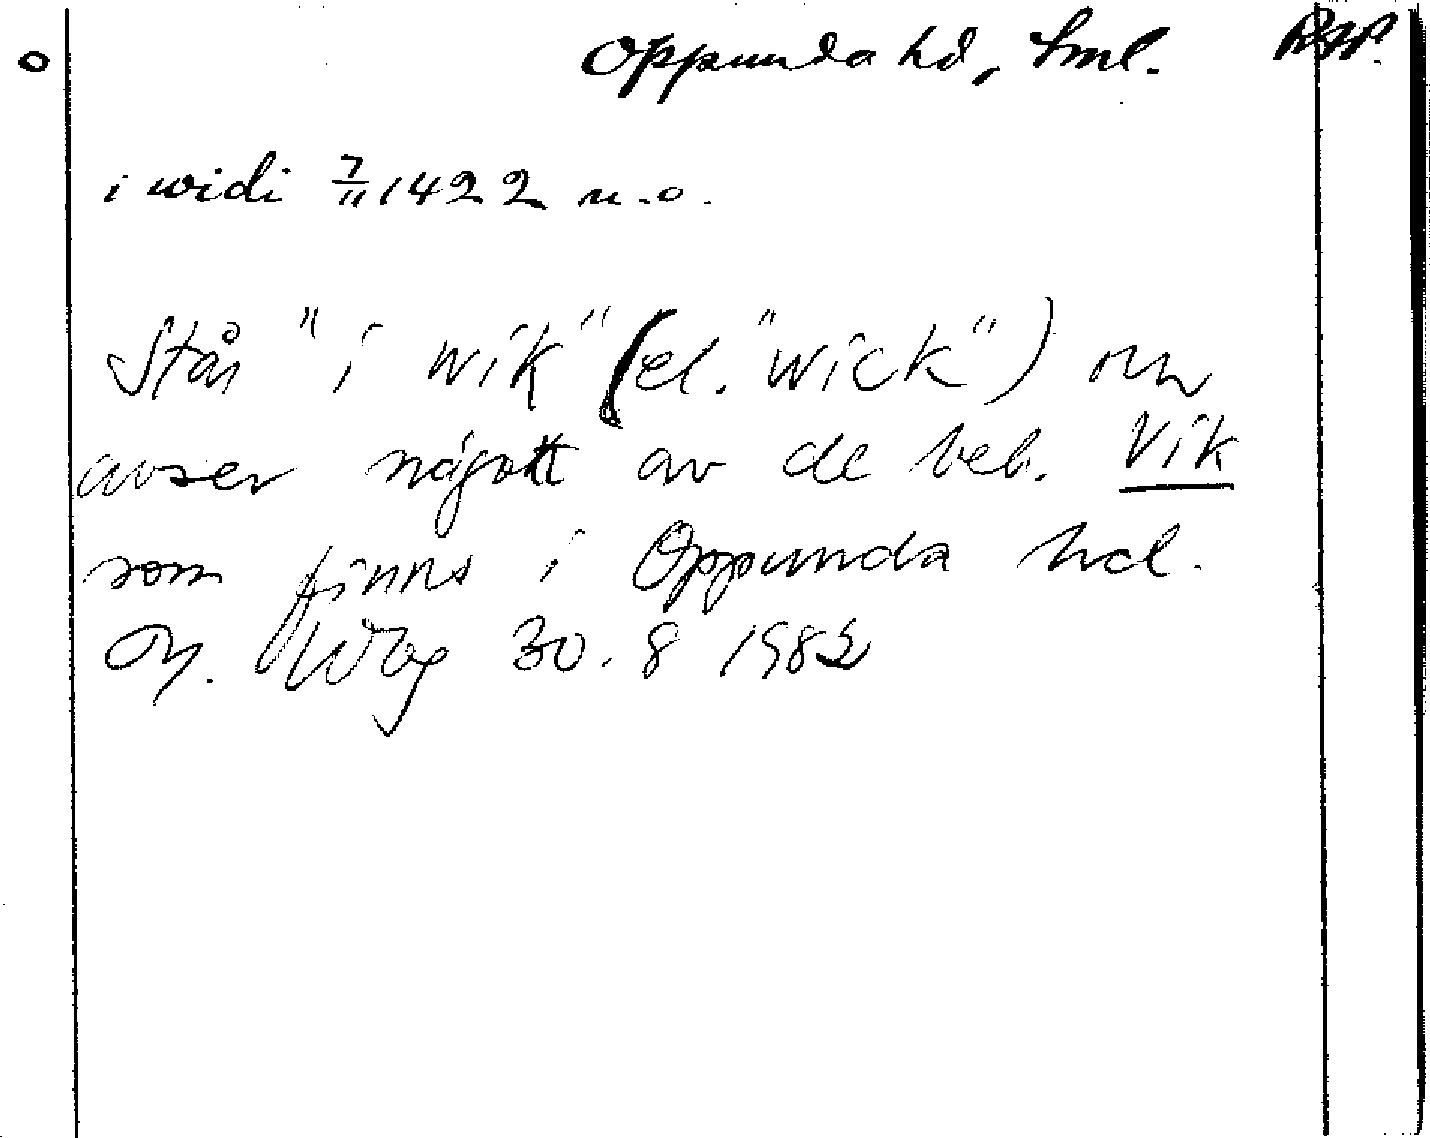 o Oppunda hd, Sml. Rpp.
i widi 7/11 1422 u. o.
Står "i wik" (el. "wick") om
avser något av de beb. Vik
som finns i Oppunda hd.
30.8 1982